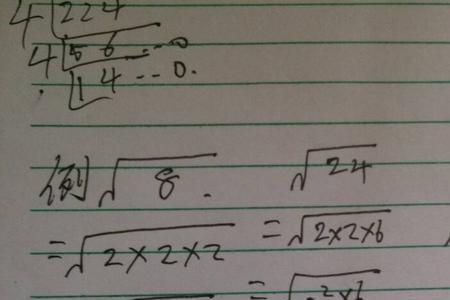 4 224
4 56 -- 0
14 -- 0.
例 √8. √24
= √2×2×2 = √2×2×6
= √2²×6